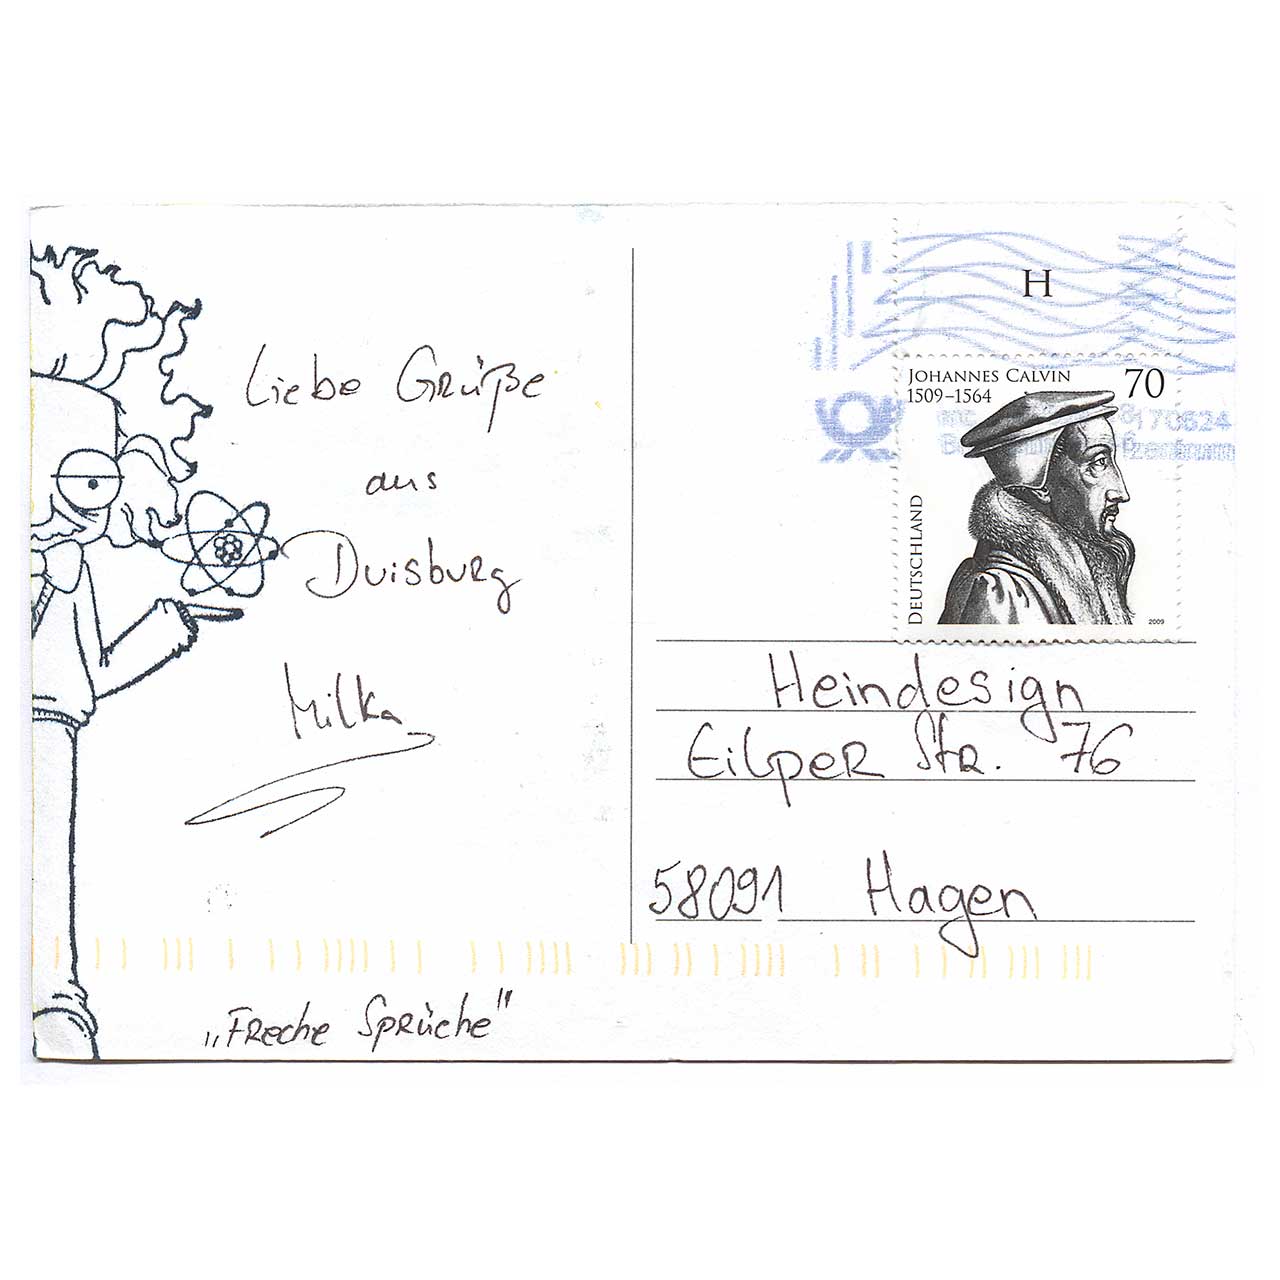 Liebe Grüße
aus
Duisburg
Milka
„Freche Sprüche"
H
JOHANNES CALVIN 70
1509–1564
DEUTSCHLAND
2009
Heindesign
Eilper Str. 76
58091 Hagen